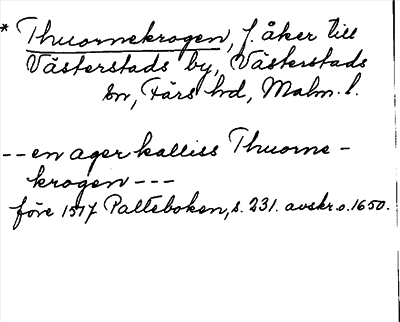 * Thuornekrogen, f. åker till
Västerstads by, Västerstads
sn, Färs hd, Malm. l.
-- en ager kalliss Thuorne-
krogen ---
före 1517 Palteboken, s. 231. avskr. o. 1650.